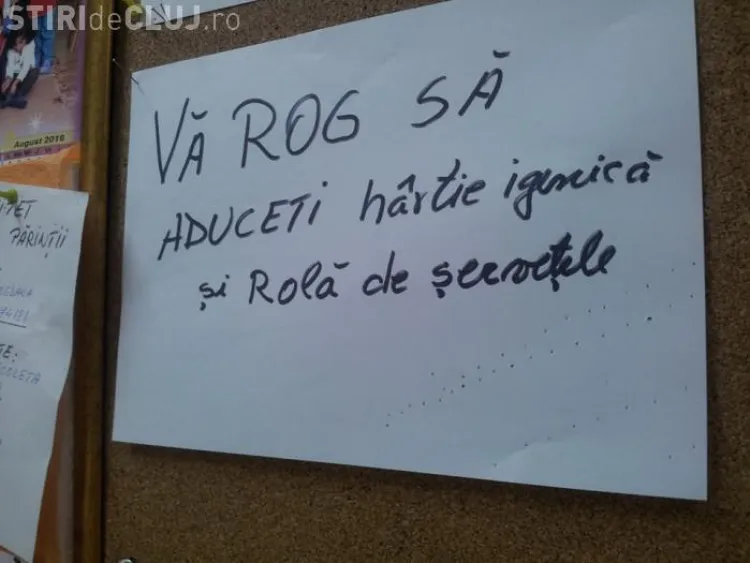 STIRIdeCLUJ.ro
August 2016
PĂRINȚII
VĂ ROG SĂ
ADUCETI hârtie igenică
și Rolă de șervețele